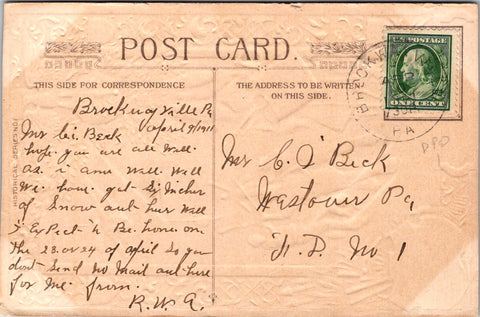 POST CARD.
THIS SIDE FOR CORRESPONDENCE
THE ADDRESS TO BE WRITTEN
ON THIS SIDE.
U.S. POSTAGE
ONE CENT
PA
HISTORICAL SERIES NO.
Brockwayville Pa
April 9/1911
Mr C.i. Beck
hope you are all well
as i am well well
We have got Six inches
of Snow out hur Well
i Expect to Be home on
the 23 or 24 of april So you
dont Send no Mail out here
for Me from
R.W.A.
Mr C. I Beck
Westover Pa
R. D. No 1
DPO
1